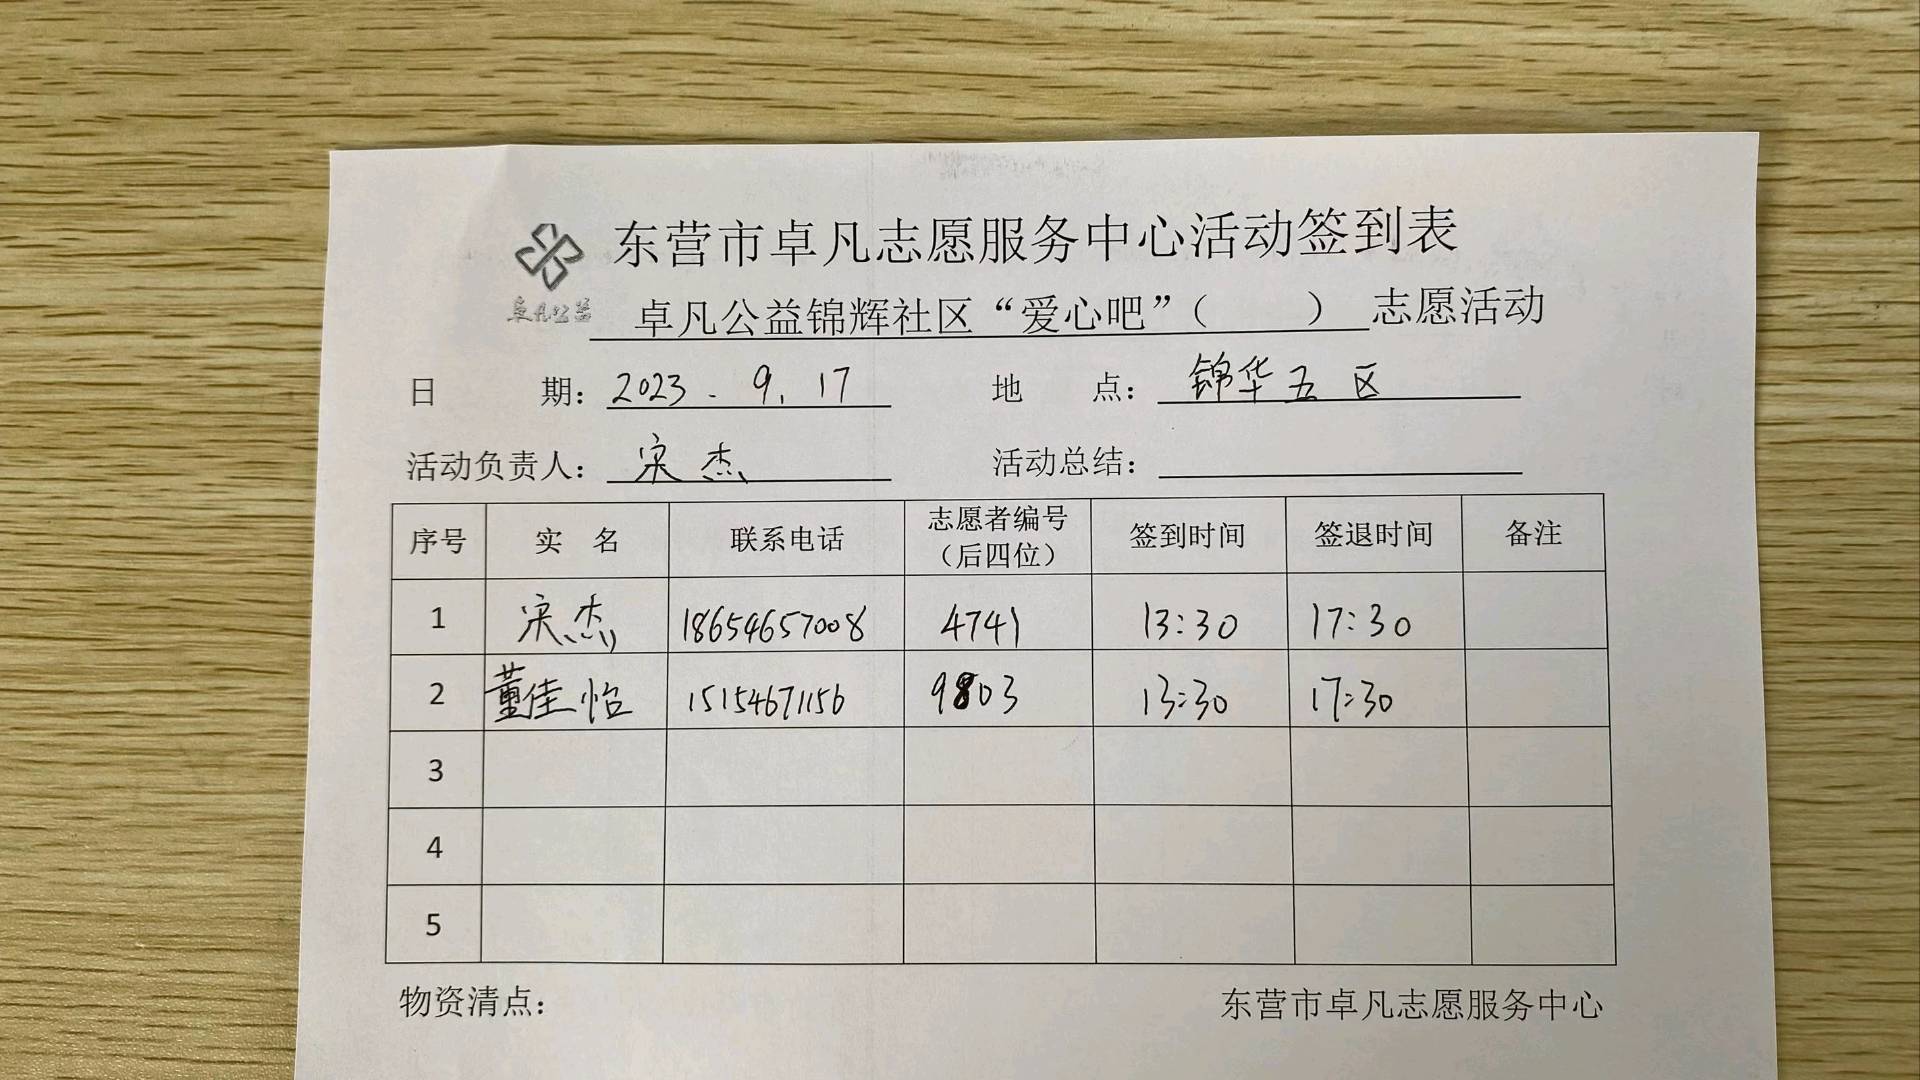 东营市卓凡志愿服务中心活动签到表
卓凡公益
卓凡公益锦辉社区“爱心吧”（ ）志愿活动
日 期：2023.9.17 地 点：锦华五区
活动负责人：宋杰 活动总结：
序号 实 名 联系电话 志愿者编号（后四位） 签到时间 签退时间 备注
1 宋杰 18654657008 4741 13:30 17:30
2 董佳怡 15154671156 9803 13:30 17:30
3
4
5
物资清点： 东营市卓凡志愿服务中心